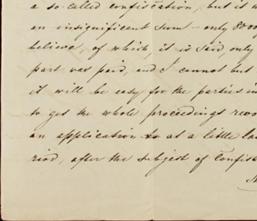 a so-called confiscation, but it w
an insignificant sum - only
believe, of which, it is said, only
part was paid, and I cannot but
it will be easy for the parties in
to get the whole proceedings revo
an application to at a little la
riod, after the subject of Confis